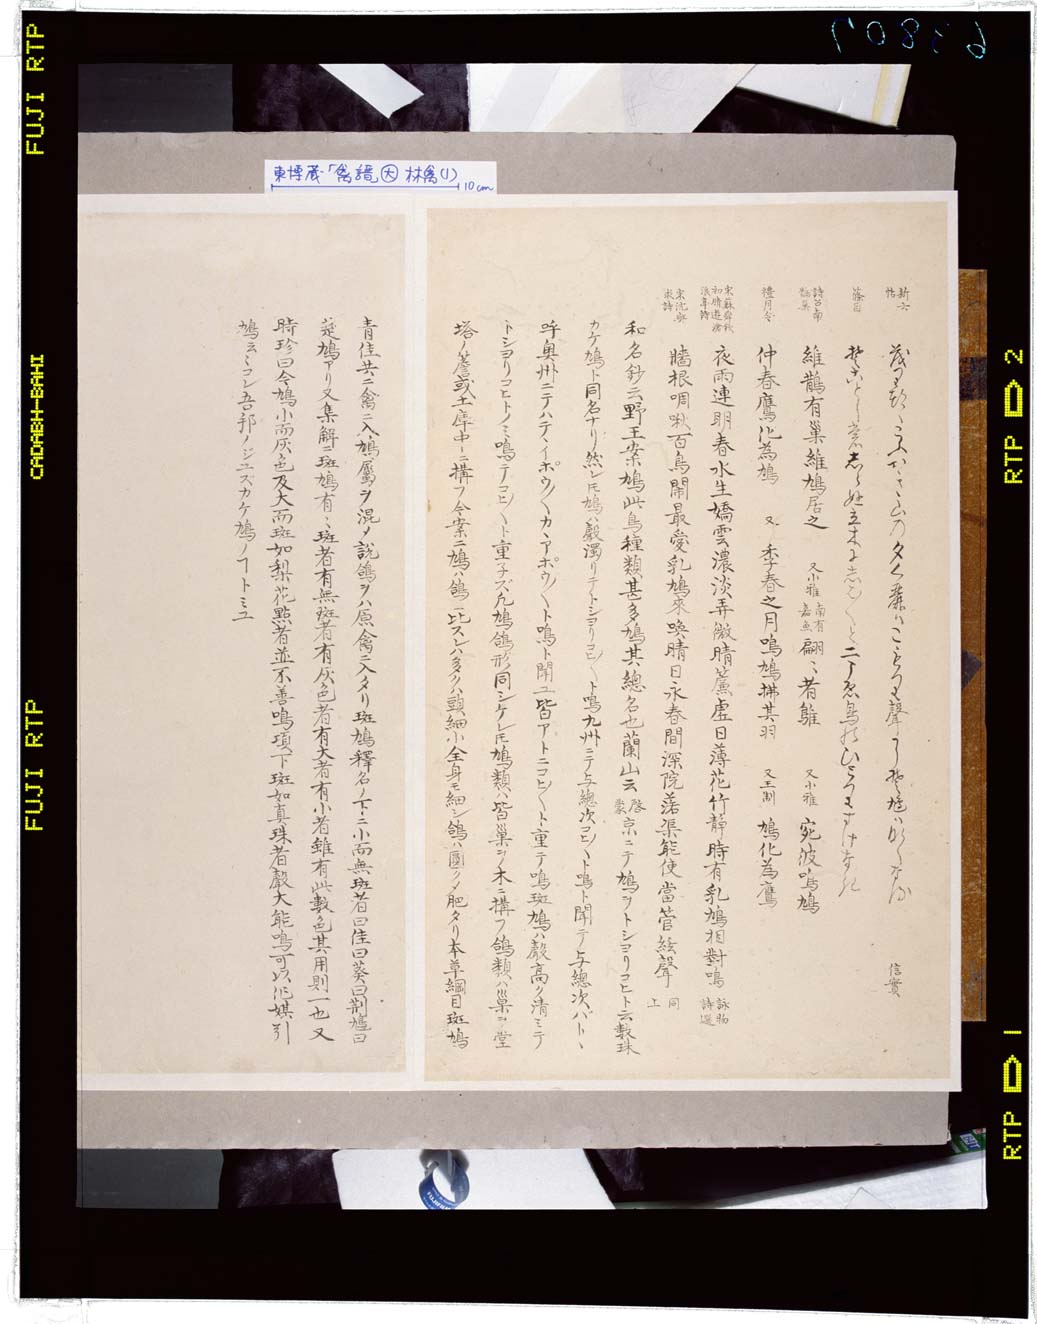 65807
FUJI RTP
CADABH-BAHI
FUJI RTP
RTP 2
RTP 1
東博蔵「禽譜」大 林禽(1)
10cm
新六帖
信實
篠目
詩召南鵲巣
維鵲有巣維鳩居之 又小雅南有嘉魚 翩〻者鵻 又小雅 宛彼鳴鳩
禮月令
仲春鷹化為鳩 又 季春之月鳴鳩拂其羽 又王制 鳩化為鷹
宋蘇舜欽初晴遊滄浪亭詩
夜雨連明春水生嬌雲濃淡弄微晴簾虚日薄花竹静時有乳鳩相對鳴 詠物詩選
牆根啁啾百鳥閙最愛乳鳩來喚晴日永春間深院落渠能使當管絃聲 同上
和名鈔云野王案鳩此鳥種類甚多鳩其總名也蘭山云 啓蒙 京ニテ鳩ヲトシヨリコヒト云数珠
カケ鳩ト同名ナリ然レ𪜈鳩ハ聲濁リテトシヨリコヒ〱ト鳴九州ニテ与總次コヒ〱ト鳴ト聞テ与總次バト〻
呼奥州ニテハテヽイポウ〱カヽアポウ〱ト鳴ト聞ユ皆アトニコヒ〱ト重テ鳴斑鳩ハ聲高ク清ミテ
トシヨリコヒトノミ鳴テコヒ〱ト重子ズ凡鳩鴿形同シケレ𪜈鳩類ハ皆巣ヲ木ニ構フ鴿類ハ巣ヲ堂
塔ノ簷或土庫中ニ構フ今案ニ鳩ハ鴿ニ比スレハ多クハ頭細小全身モ細シ鴿ハ圓クメ肥タリ本草綱目斑鳩
青隹共ニ禽ニ入鳩屬ヲ混メ説鴿ヲハ原禽ニ入タリ斑鳩釋名ノ下ニ小而無斑者曰隹曰䳕曰荊鳩曰
楚鳩アリ又集解ニ斑鳩有〻斑者有無斑者有灰色者有大者有小者雖有此數色其用則一也又
時珍曰今鳩小而灰色及大而斑如梨花點者並不善鳴項下斑如真珠者聲大能鳴可以作媒引
鳩云〻コレ吾邦ノジユズカケ鳩ノヿトミユ